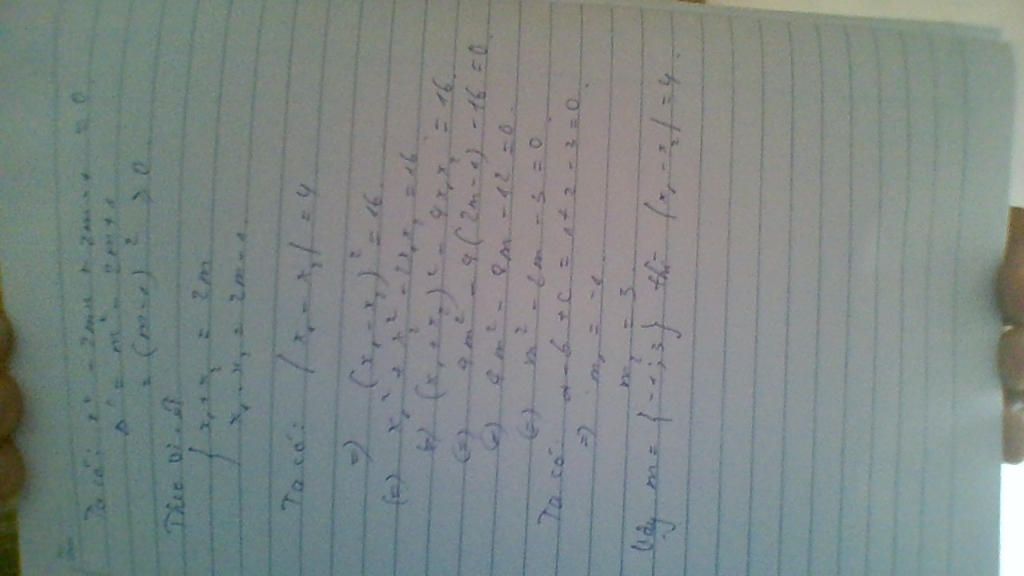 Ta có: x² - 2mx + 2m - 1 = 0
Δ' = m² - 2m + 1
= (m-1)² ≥ 0
Theo vi-ét
{ x₁ + x₂ = 2m
x₁ . x₂ = 2m - 1
Ta có: |x₁ - x₂| = 4
=) (x₁ - x₂)² = 16
(=) x₁² + x₂² - 2x₁x₂ = 16
(=) (x₁ + x₂)² - 4x₁x₂ = 16
(=) 4m² - 4(2m-1) - 16 = 0
(=) 4m² - 8m - 12 = 0
(=) m² - 2m - 3 = 0
Ta có: a - b + c = 1 + 2 - 3 = 0
=) m₁ = -1
m₂ = 3
Vậy m = {-1; 3} thì |x₁ - x₂| = 4.